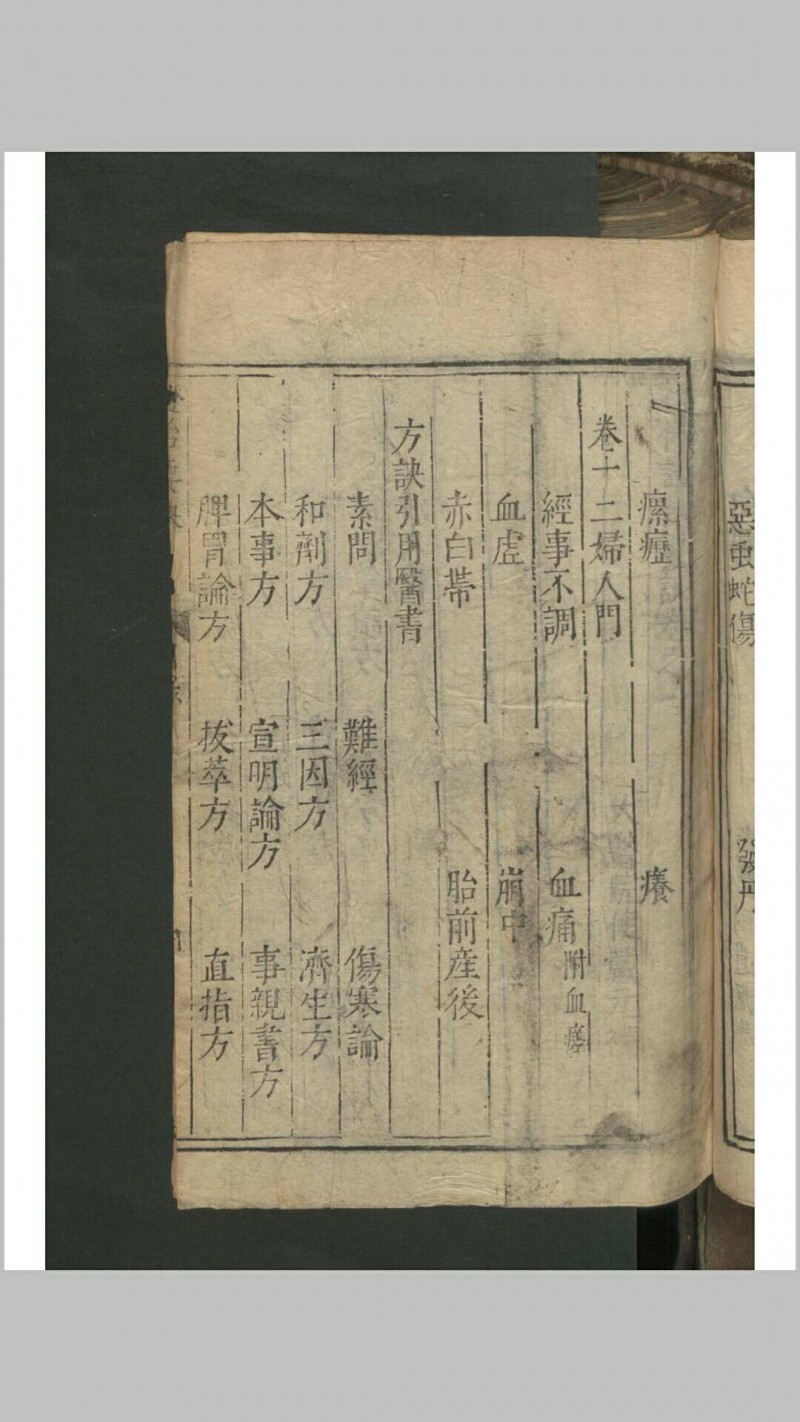 惡虫蛇傷
瘰癧 癢
卷十二婦人門
經事不調 血痛附血瘕
血虛 崩中
赤白帶 胎前產後
方訣引用醫書
素問 難經 傷寒論
和劑方 三因方 濟生方
本事方 宣明論方 事親書方
脾胃論方 拔萃方 直指方